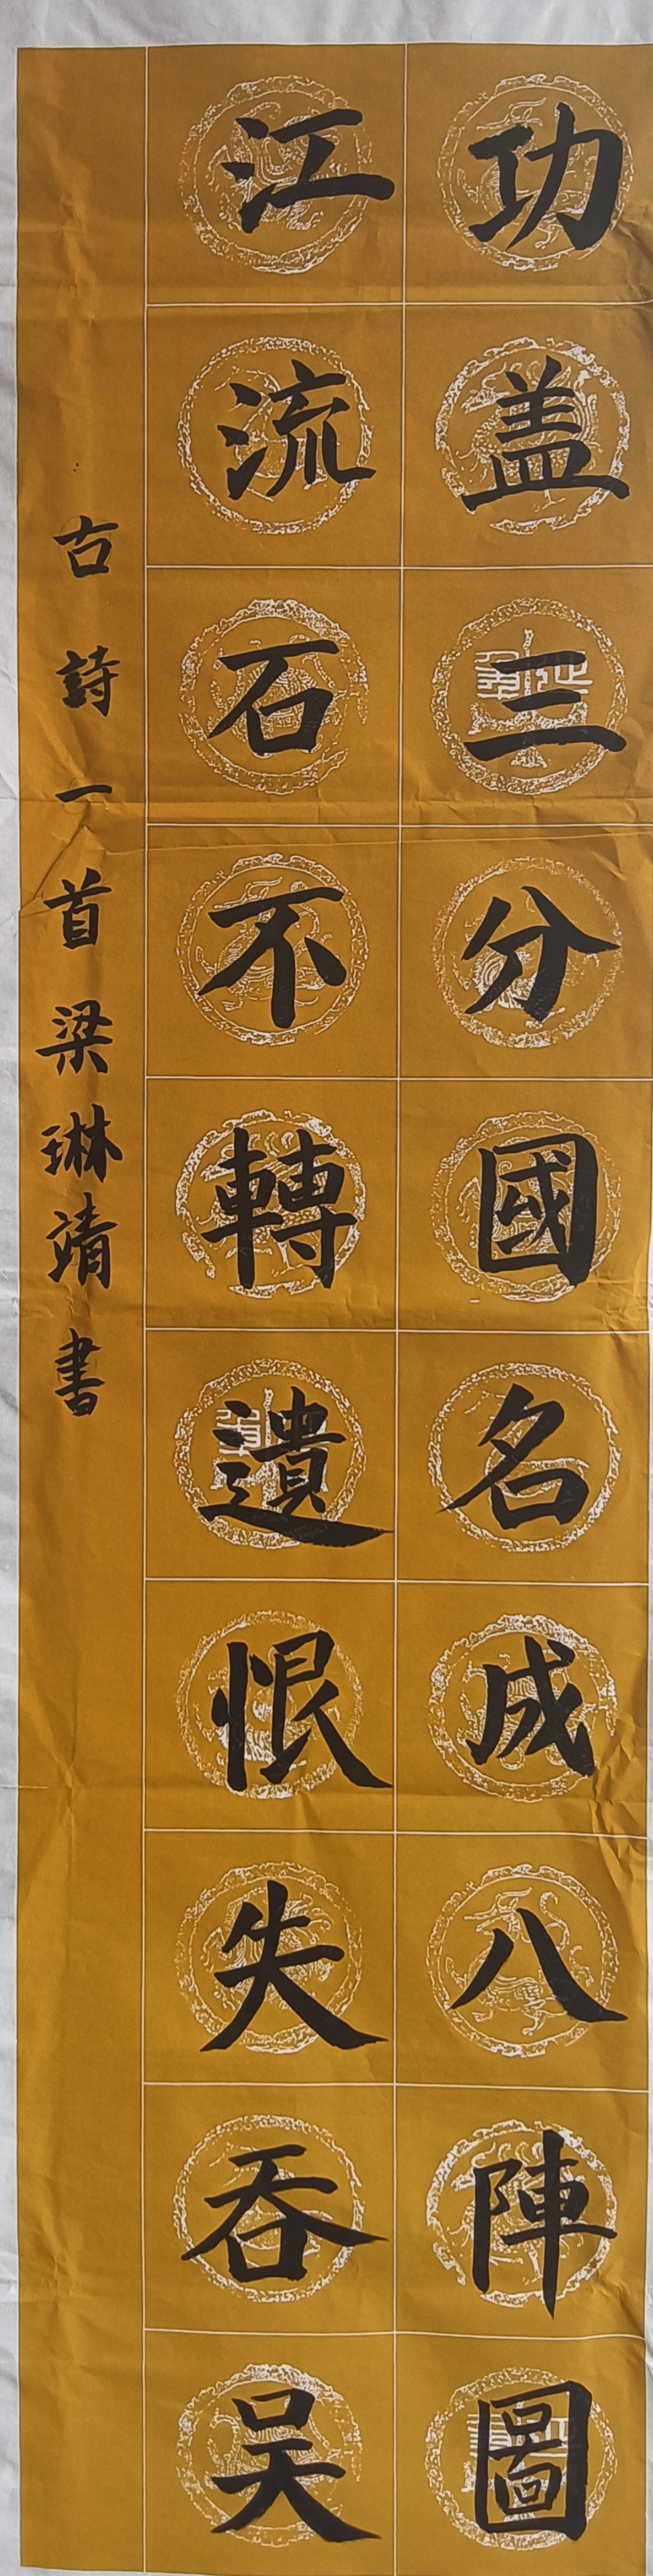 功盖三分國名成八陣圖
江流石不轉遺恨失吞吴
古詩一首梁琳靖書